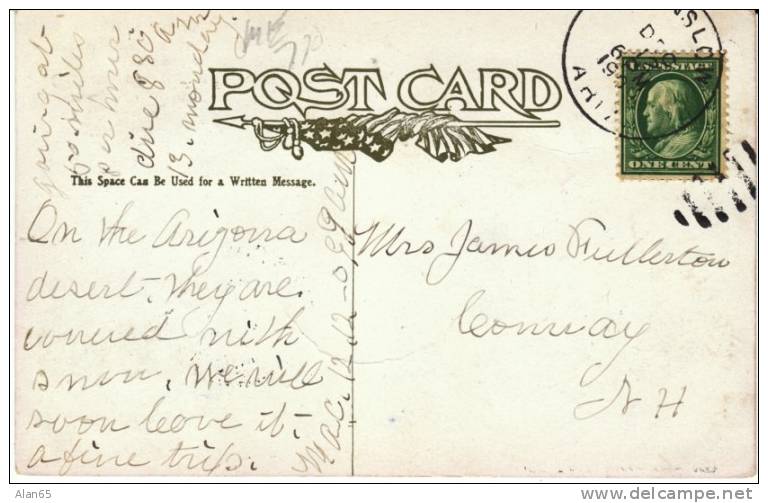 going at
60 miles
per hour
due 8 30
13. monday
POST CARD
This Space Can Be Used for a Written Message.
U.S. POSTAGE
ONE CENT
On the Arizona
desert. they are.
covered with
snow. We will
soon leave it.-
a fine trip.
Mac. 12.12-09
Mrs James Fullerton
Conway
N H
Alan65
delcampe.net